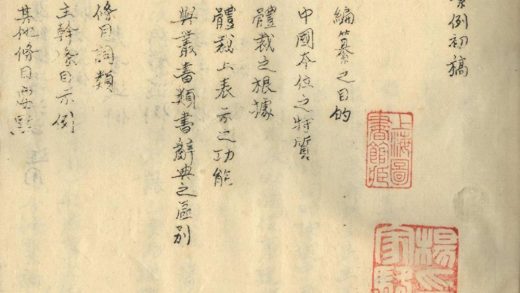 例初稿
編纂之目的
中國本位之特質
體裁之根據
體裁上表示之功能
與叢書類書辭典之區別
條目詞類
主幹条目示例
其他條目要點
上海圖
書館
楊
家駱